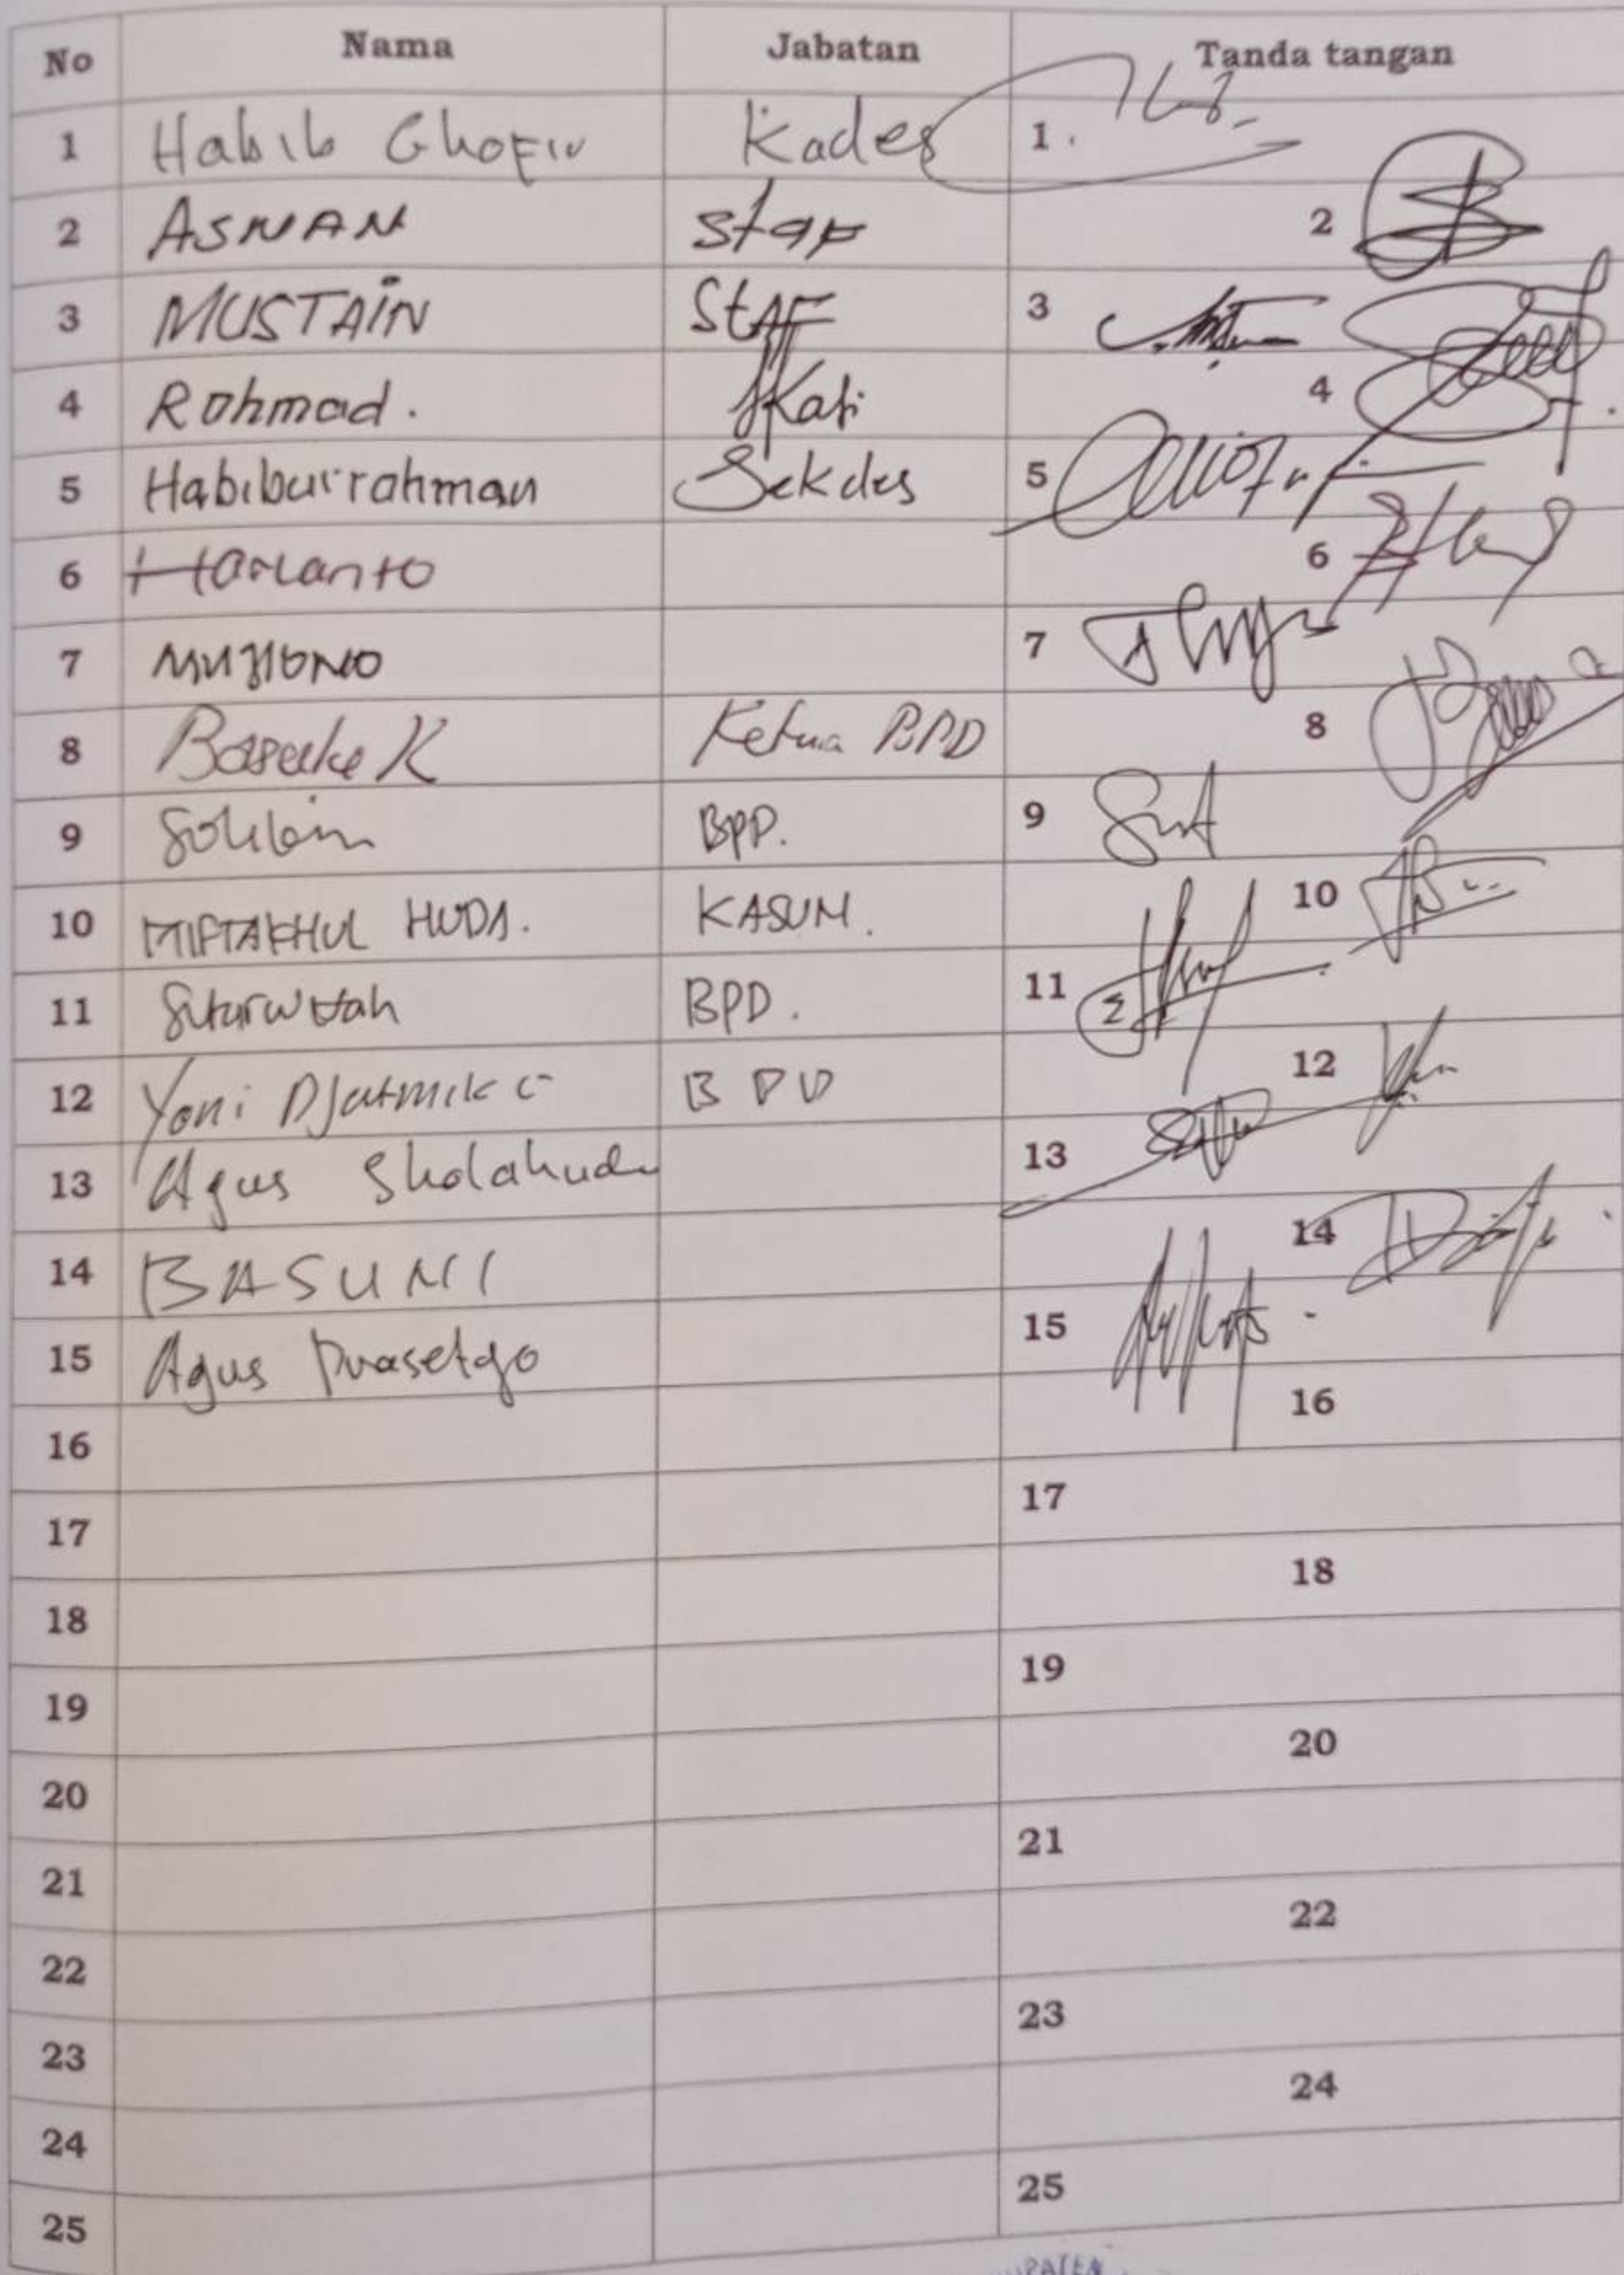 No Nama Jabatan Tanda tangan
1 Habib Ghofir Kades 1.
2 ASNAN staf 2
3 MUSTAIN STAF 3
4 Rohmad. 4
5 Habiburrahman Sekdes 5
6 Harianto 6
7 7
8 K Ketua BPD 8
9 BPD. 9
10 MIFTAKHUL HUDA. KASUM. 10
11 BPD. 11
12 Yoni Djatmiko BPD 12
13 Agus 13
14 BASUNI 14
15 Agus Prasetyo 15
16 16
17 17
18 18
19 19
20 20
21 21
22 22
23 23
24 24
25 25